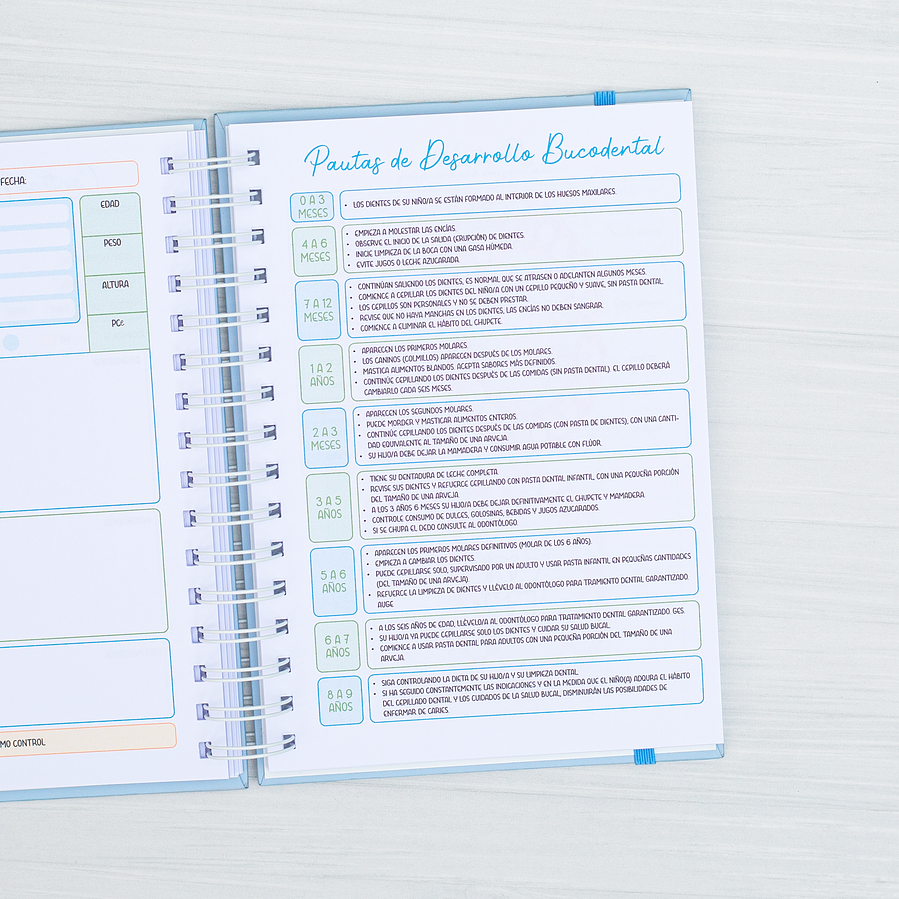 FECHA:
EDAD
PESO
ALTURA
PCe
MO CONTROL
Pautas de Desarrollo Bucodental
0 A 3
MESES
• LOS DIENTES DE SU NIÑO/A SE ESTÁN FORMADO AL INTERIOR DE LOS HUESOS MAXILARES.
4 A 6
MESES
• EMPIEZA A MOLESTAR LAS ENCÍAS.
• OBSERVE EL INICIO DE LA SALIDA (ERUPCIÓN) DE DIENTES.
• INICIE LIMPIEZA DE LA BOCA CON UNA GASA HÚMEDA.
• EVITE JUGOS O LECHE AZUCARADA.
7 A 12
MESES
• CONTINÚAN SALIENDO LOS DIENTES, ES NORMAL QUE SE ATRASEN O ADELANTEN ALGUNOS MESES.
• COMIENCE A CEPILLAR LOS DIENTES DEL NIÑO/A CON UN CEPILLO PEQUEÑO Y SUAVE, SIN PASTA DENTAL.
• LOS CEPILLOS SON PERSONALES Y NO SE DEBEN PRESTAR.
• REVISE QUE NO HAYA MANCHAS EN LOS DIENTES, LAS ENCÍAS NO DEBEN SANGRAR.
• COMIENCE A ELIMINAR EL HÁBITO DEL CHUPETE.
1 A 2
AÑOS
• APARECEN LOS PRIMEROS MOLARES.
• LOS CANINOS (COLMILLOS) APARECEN DESPUÉS DE LOS MOLARES.
• MASTICA ALIMENTOS BLANDOS. ACEPTA SABORES MÁS DEFINIDOS.
• CONTINÚE CEPILLANDO LOS DIENTES DESPUÉS DE LAS COMIDAS (SIN PASTA DENTAL). EL CEPILLO DEBERÁ
CAMBIARLO CADA SEIS MESES.
2 A 3
MESES
• APARECEN LOS SEGUNDOS MOLARES.
• PUEDE MORDER Y MASTICAR ALIMENTOS ENTEROS.
• CONTINÚE CEPILLANDO LOS DIENTES DESPUÉS DE LAS COMIDAS (CON PASTA DE DIENTES), CON UNA CANTI-
DAD EQUIVALENTE AL TAMAÑO DE UNA ARVEJA.
• SU HIJO/A DEBE DEJAR LA MAMADERA Y CONSUMIR AGUA POTABLE CON FLÚOR.
3 A 5
AÑOS
• TIENE SU DENTADURA DE LECHE COMPLETA.
• REVISE SUS DIENTES Y REFUERCE CEPILLANDO CON PASTA DENTAL INFANTIL, CON UNA PEQUEÑA PORCIÓN
DEL TAMAÑO DE UNA ARVEJA.
• A LOS 3 AÑOS 6 MESES SU HIJO/A DEBE DEJAR DEFINITIVAMENTE EL CHUPETE Y MAMADERA.
• CONTROLE CONSUMO DE DULCES, GOLOSINAS, BEBIDAS Y JUGOS AZUCARADOS.
• SI SE CHUPA EL DEDO CONSULTE AL ODONTÓLOGO.
5 A 6
AÑOS
• APARECEN LOS PRIMEROS MOLARES DEFINITIVOS (MOLAR DE LOS 6 AÑOS).
• EMPIEZA A CAMBIAR LOS DIENTES.
• PUEDE CEPILLARSE SOLO, SUPERVISADO POR UN ADULTO Y USAR PASTA INFANTIL EN PEQUEÑAS CANTIDADES
(DEL TAMAÑO DE UNA ARVEJA).
• REFUERCE LA LIMPIEZA DE DIENTES Y LLÉVELO AL ODONTÓLOGO PARA TRAMIENTO DENTAL GARANTIZADO.
AUGE
6 A 7
AÑOS
• A LOS SEIS AÑOS DE EDAD, LLÉVELO/A AL ODONTÓLOGO PARA TRATAMIENTO DENTAL GARANTIZADO. GES.
• SU HIJO/A YA PUEDE CEPILLARSE SOLO LOS DIENTES Y CUIDAR SU SALUD BUCAL.
• COMIENCE A USAR PASTA DENTAL PARA ADULTOS CON UNA PEQUEÑA PORCIÓN DEL TAMAÑO DE UNA
ARVEJA.
8 A 9
AÑOS
• SIGA CONTROLANDO LA DIETA DE SU HIJO/A Y SU LIMPIEZA DENTAL.
• SI HA SEGUIDO CONSTANTEMENTE LAS INDICACIONES Y EN LA MEDIDA QUE EL NIÑO(A) ADQUIRA EL HÁBITO
DEL CEPILLADO DENTAL Y LOS CUIDADOS DE LA SALUD BUCAL, DISMINUIRÁN LAS POSIBILIDADES DE
ENFERMAR DE CARIES.